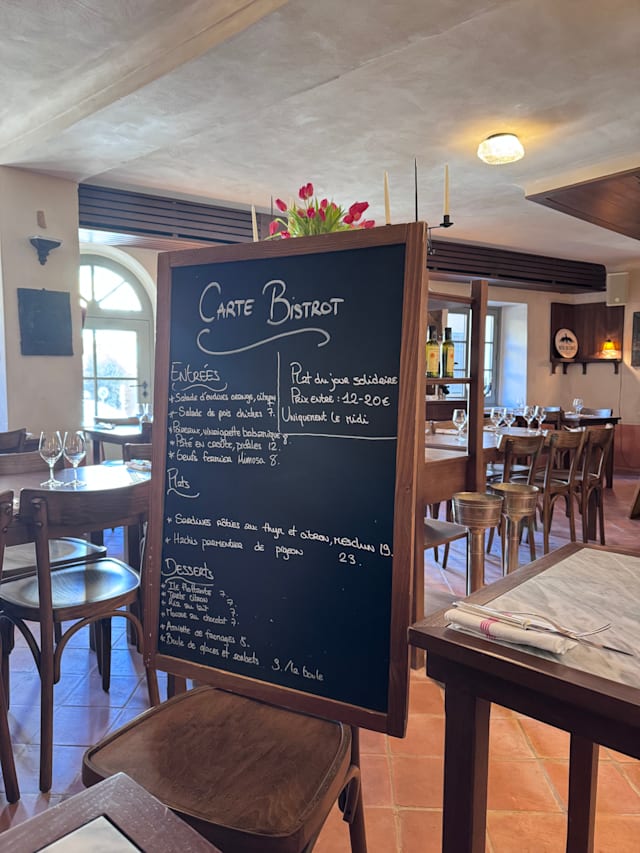 CARTE BISTROT
ENTRÉES
* Salade d'endives orange, citron
* Salade de pois chiches 7.
* Poireaux, vinaigrette balsamique 8.
* Pâté en croûte, pickles 12.
* Oeufs fermier Mimosa 8.
Plat du jour solidaire
Prix entre : 12-20€
Uniquement le midi
Plats
* Sardines rôties au thym et citron, mesclun 19.
* Hachis parmentier de pigeon 23.
DESSERTS
* Île flottante 7.
Tarte citron 7.
Riz au lait 7.
* Mousse au chocolat 7.
* Assiette de fromages 8.
* Boule de glaces et sorbets 3. /la boule